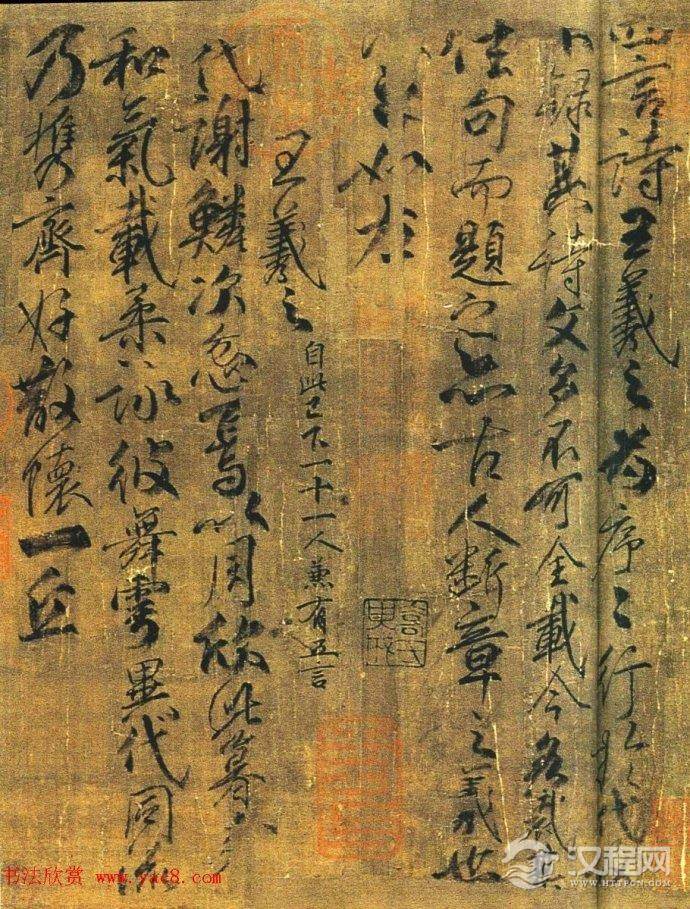 四言詩王羲之為序〻行於代
不錄其詩文多不可全載今各裁其
佳句而題之亦古人斷章之義也
詩如左
王羲之
自此已下一十一人兼有五言
代謝鱗次忽焉以周欣此暮春
和氣載柔詠彼舞雩異代同流
乃携齊好散懷一丘
书法欣赏 www.yac8.com
汉程网
HTTPCN.COM